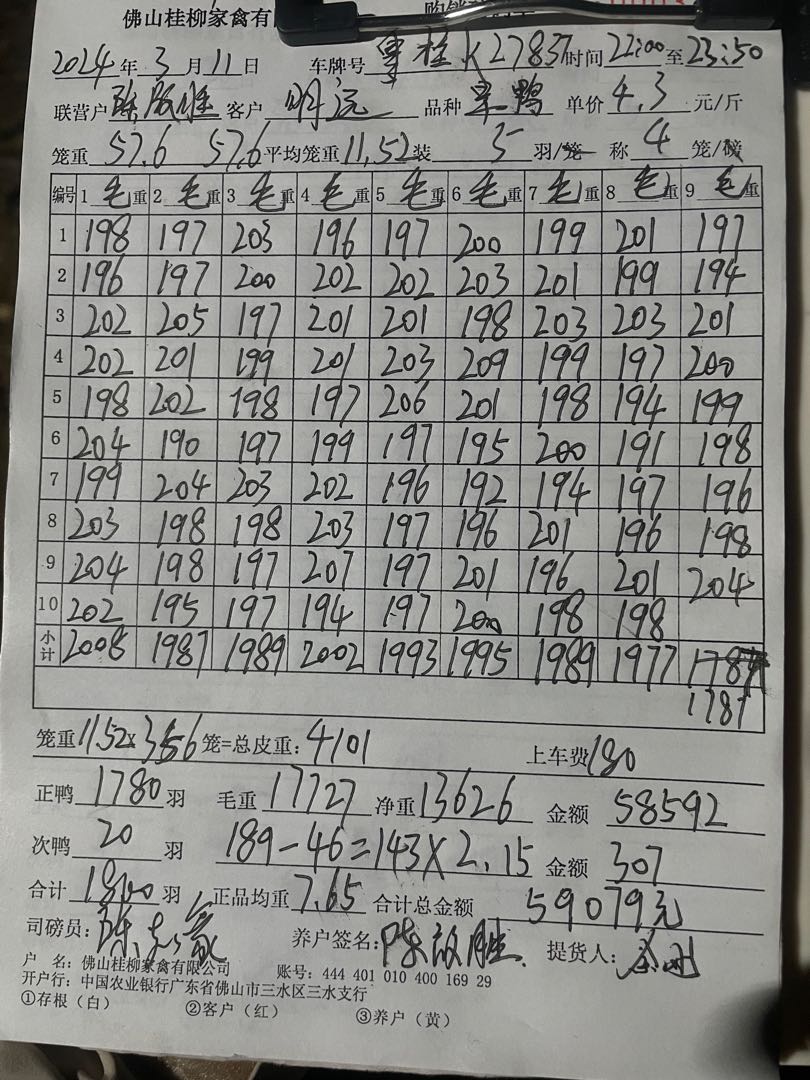 佛山桂柳家禽有
2024年3月11日 车牌号 粤桂K27837 时间22:00至23:50
联营户 陈啟胜 客户 明远 品种 黑鸭 单价4.3元/斤
笼重 57.6 57.6 平均笼重11.52 装 5 羽/笼 称 4 笼/磅
编号 1毛重 2毛重 3毛重 4毛重 5毛重 6毛重 7毛重 8毛重 9毛重
1 198 197 203 196 197 200 199 201 197
2 196 197 200 202 202 203 201 199 194
3 202 205 197 201 201 198 203 203 201
4 202 201 199 201 203 209 199 197 200
5 198 202 198 197 206 201 198 194 199
6 204 190 197 199 197 195 200 191 198
7 199 204 203 202 196 192 194 197 196
8 203 198 198 203 197 196 201 196 198
9 204 198 197 207 197 201 196 201 204
10 202 195 197 194 197 200 198 198
小计 2008 1987 1989 2002 1993 1995 1989 1977 1787
1787
笼重11.52×356笼=总皮重:4101 上车费180
正鸭 1780 羽 毛重 17727 净重13626 金额 58592
次鸭 20 羽 189-46=143×2.15 金额 307
合计 1800 羽 正品均重 7.65 合计总金额 59079元
司磅员: 养户签名:陈啟胜 提货人:
户 名:佛山桂柳家禽有限公司 账号:444 401 010 400 169 29
开户行:中国农业银行广东省佛山市三水区三水支行
①存根(白) ②客户(红) ③养户(黄)